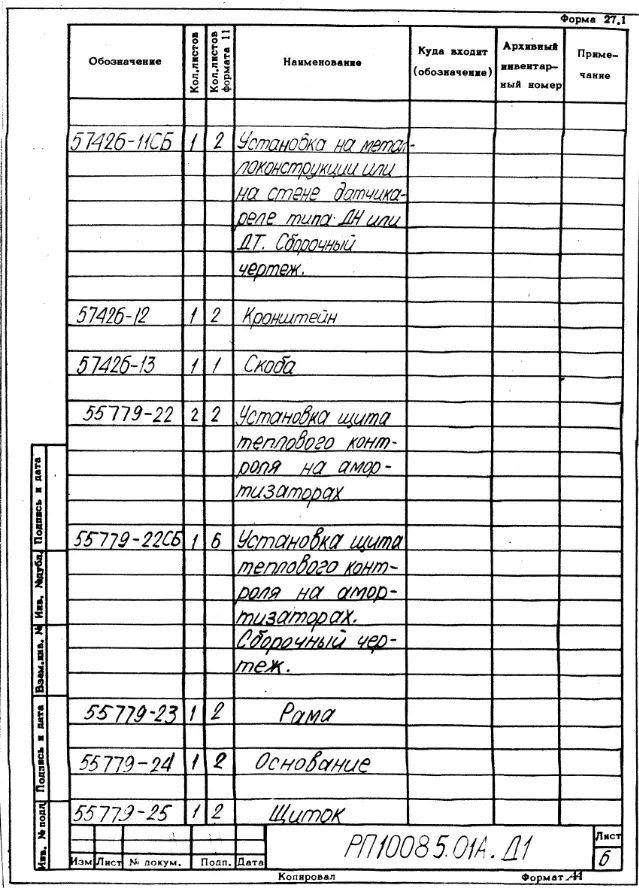 Форма 27.1
Обозначение
Кол.листов
Кол.листов формата 11
Наименование
Куда входит (обозначение)
Архивный инвентар-ный номер
Приме-чание
57426-11СБ 1 2 Установка на метал-
локонструкции или
на стене датчика-
реле типа ДН или
ДТ. Сборочный
чертеж.
57426-12 1 2 Кронштейн
57426-13 1 1 Скоба
55779-22 2 2 Установка щита
теплового конт-
роля на амор-
тизаторах
55779-22СБ 1 6 Установка щита
теплового конт-
роля на амор-
тизаторах.
Сборочный чер-
теж.
55779-23 1 2 Рама
55779-24 1 2 Основание
55779-25 1 2 Щиток
Инв. № подл.
Подпись и дата
Взам.инв. №
Инв. №дубл.
Подпись и дата
Изм Лист № докум. Подп. Дата
РП10085.01А.Д1
Лист
6
Копировал
Формат 11